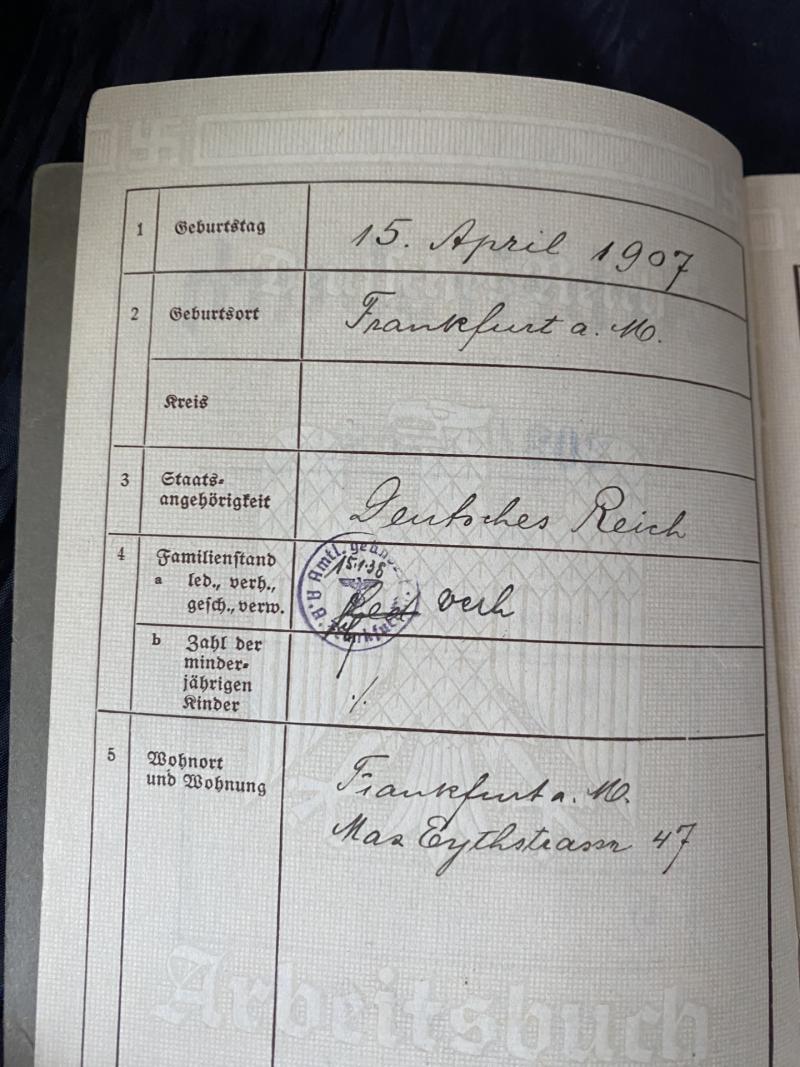 1 Geburtstag 15. April 1907
2 Geburtsort Frankfurt a. M.
Kreis
3 Staats-
angehörigkeit Deutsches Reich
4 Familienstand
a led., verh.,
gesch., verw. led verh
Amtl. geänd.
15.1.38
b Zahl der
minder-
jährigen
Kinder ./.
5 Wohnort
und Wohnung
Frankfurt a. M.
Max Eythstrasse 47
Deutsches Reich
Arbeitsbuch